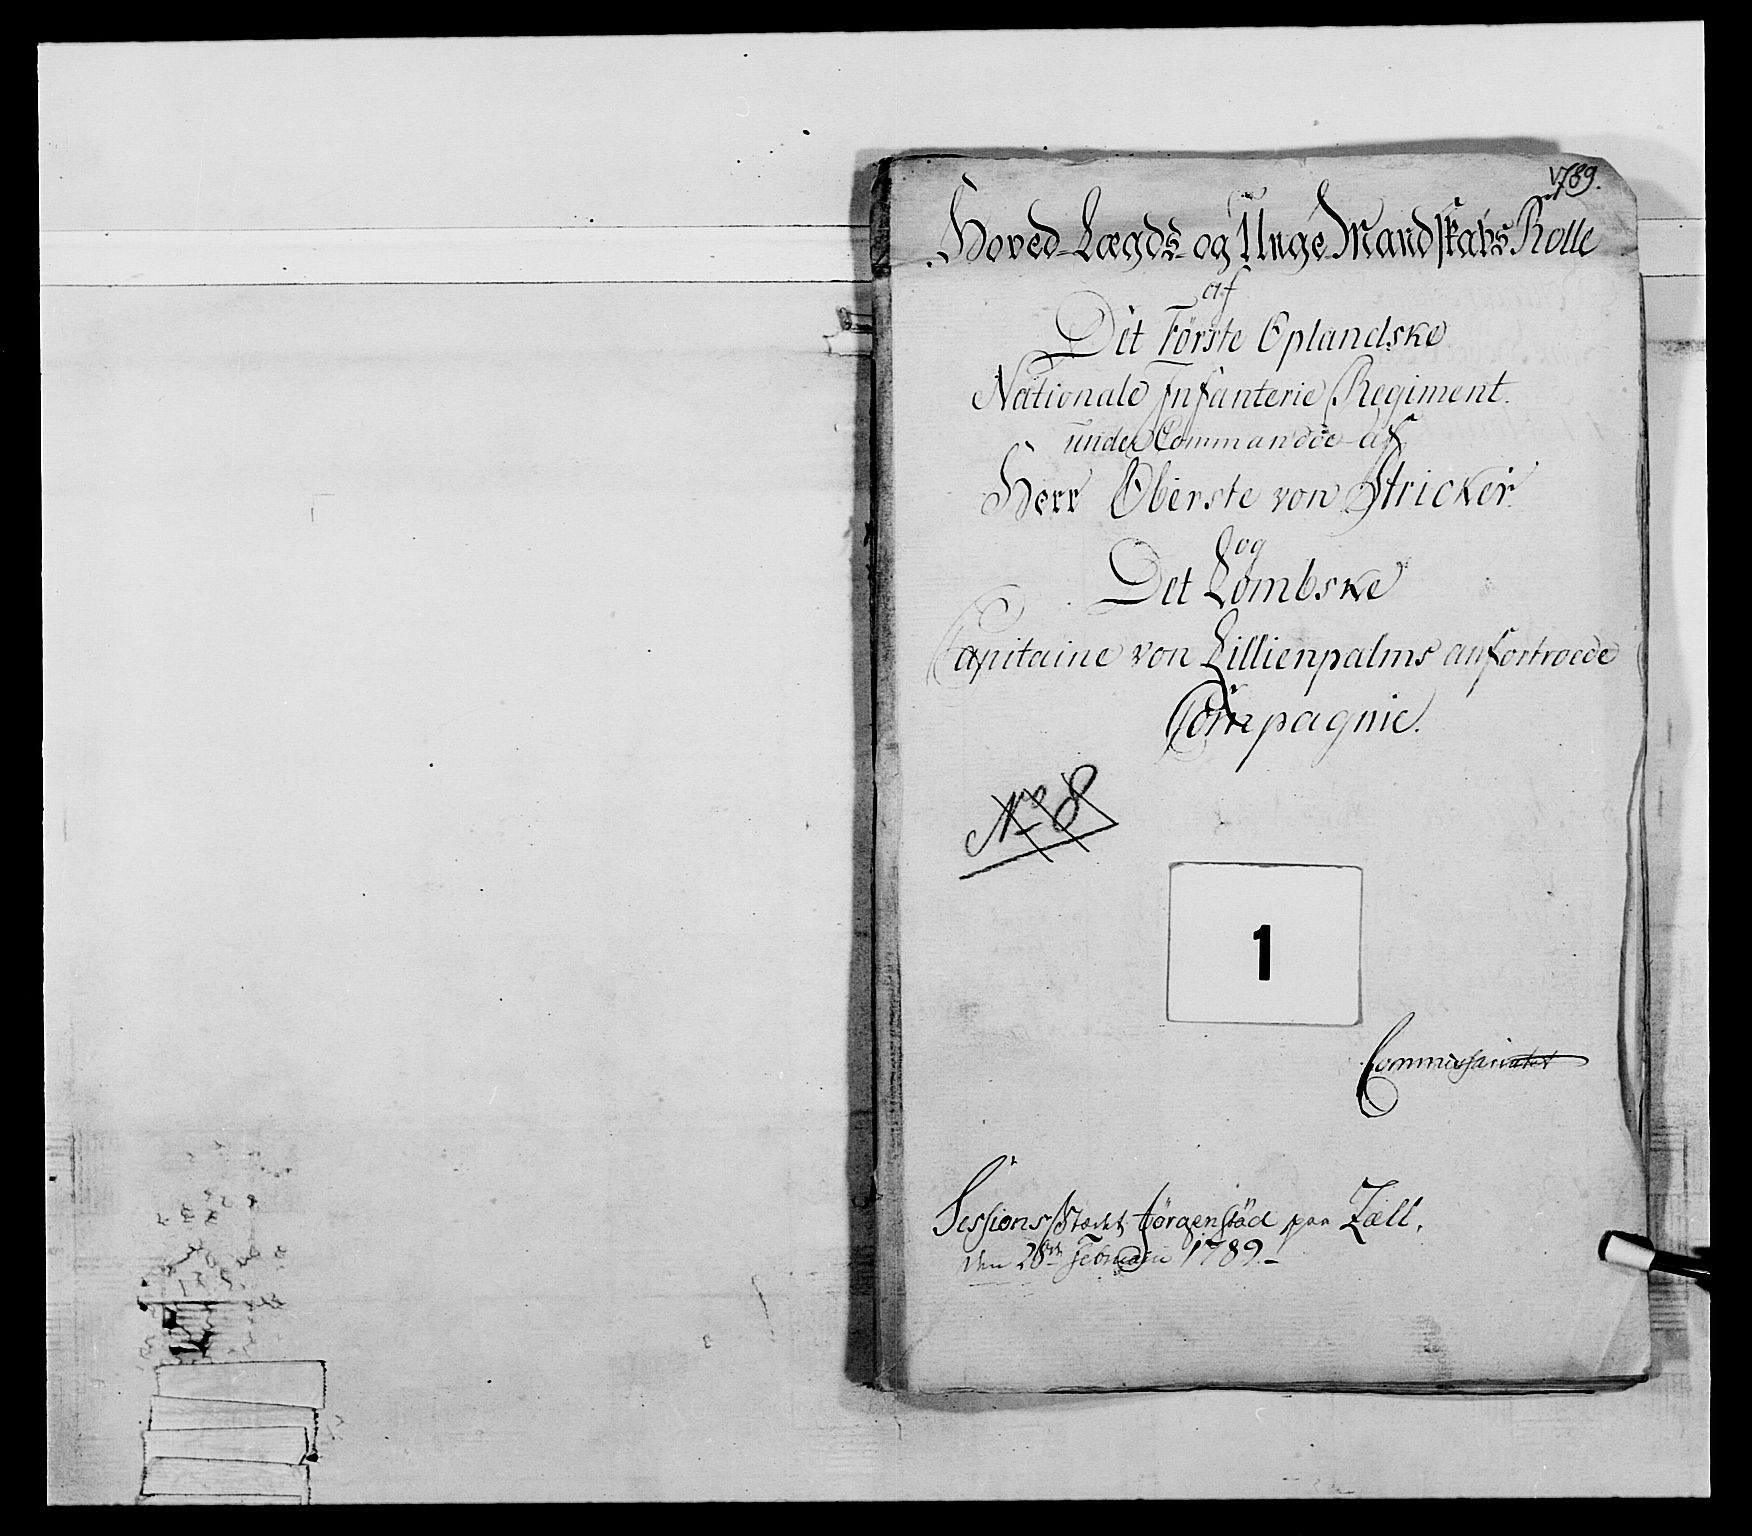 1789.
Hoved-Lægds- og Unge Mandskabs Rolle
af
Dit Første Oplandske
Nationale Infanterie Regiment.
under Commandoe af
Herr Oberste von Stricker.
og
Det Lombske
Capitaine von Lillienpalms anfortroede
Compagnie.
No 8
1
Commissariatet
Sessions Stædet Jörgenstad paa
den 28de Februarii 1789.